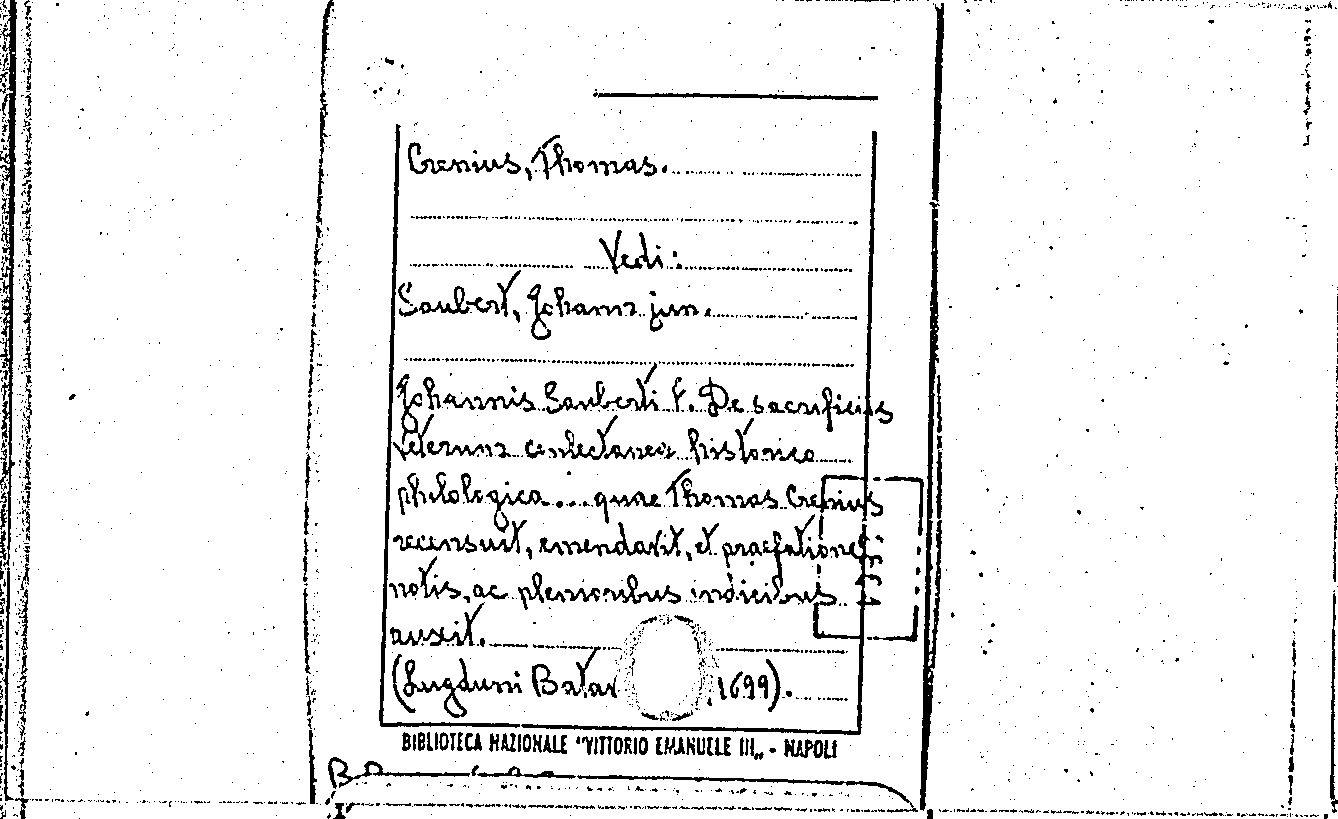 Crenius, Thomas.
Vedi:
Saubert, Johann jun.
Johannis Sauberti F. De sacrificiis
veterum conlectanea historico
philologica... quae Thomas Crenius
recensuit, emendavit, et praefatione,
notis, ac plenioribus indicibus
auxit.
(Lugduni Batav 1699).
BIBLIOTECA NAZIONALE "VITTORIO EMANUELE III„ - NAPOLI